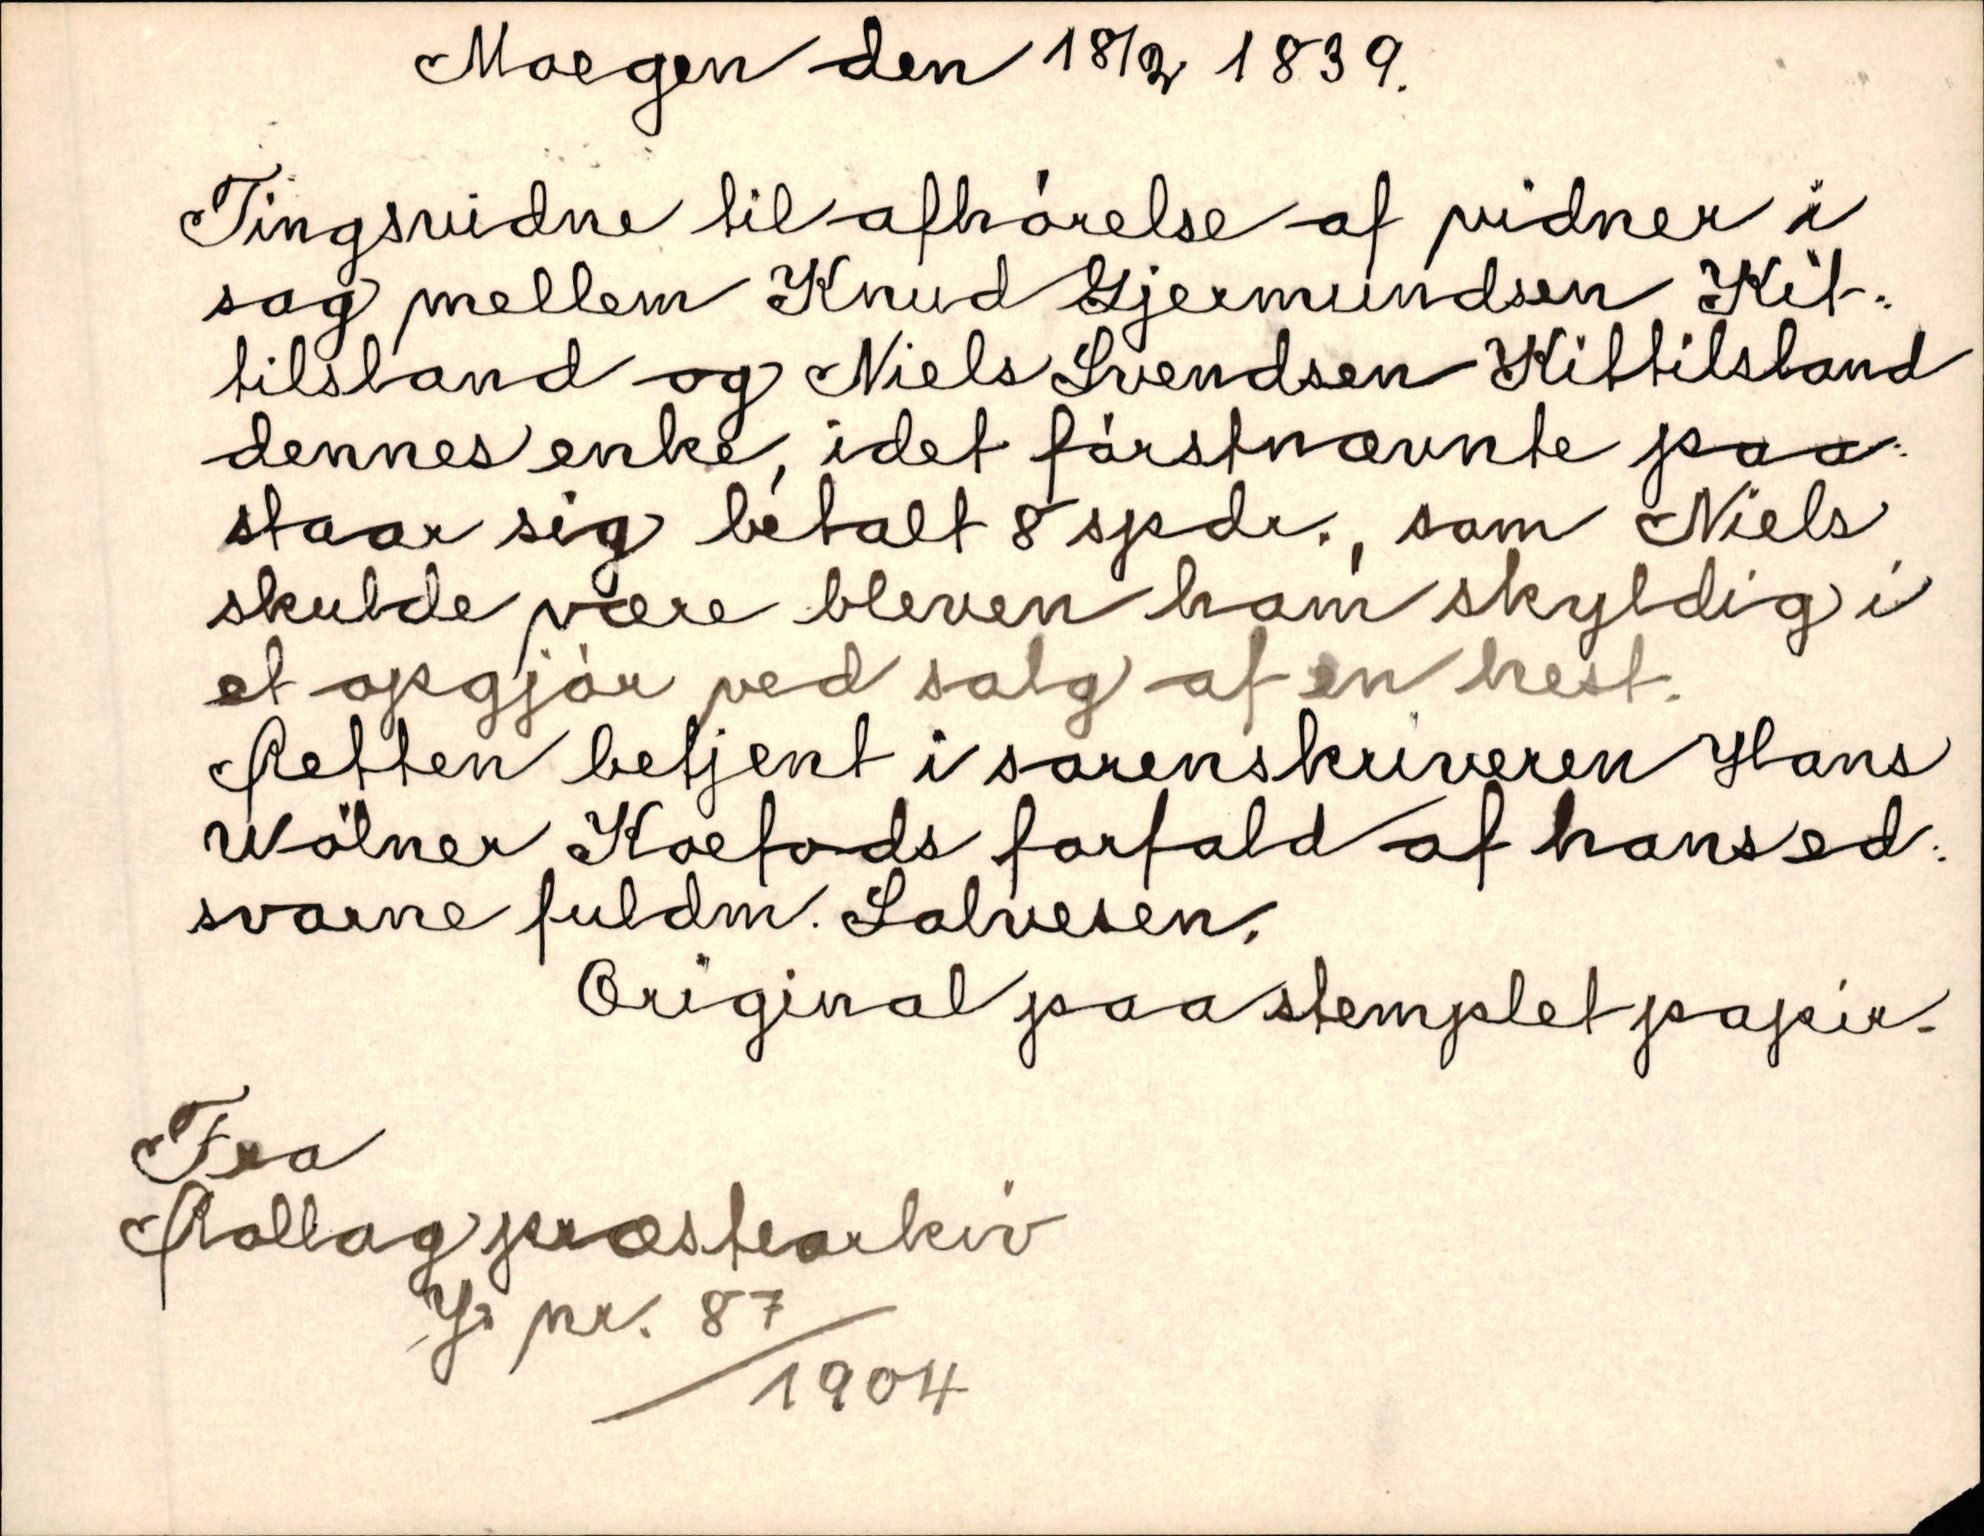 Moegen den 18/2 1839.
Tingsvidne til afhörelse af vidner i
sag mellem Knud Gjermundsen Kit-
tilsland og Niels Svendsen Kittilsland
dennes enke, idet förstnævnte paa-
staar sig betalt 8 spdr., som Niels
skulde være bleven ham skyldig i
et opgjör ved salg af en hest.
Retten betjent i sorenskriveren Hans
Wölner Koefods forfald af hans ed-
svorne fuldm. Salvesen.
Original paa stemplet papir.
Fra
Rollag præstearkiv
J. nr. 87/1904